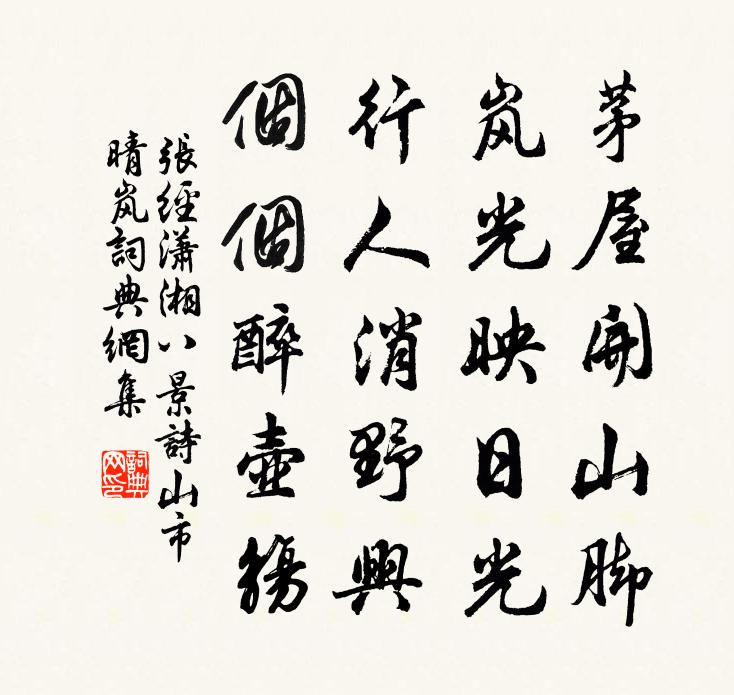 茅屋開山脚
岚光映日光
行人消野興
個個醉壺觴
張經瀟湘八景詩山市
晴岚詞典網集
詞典网印